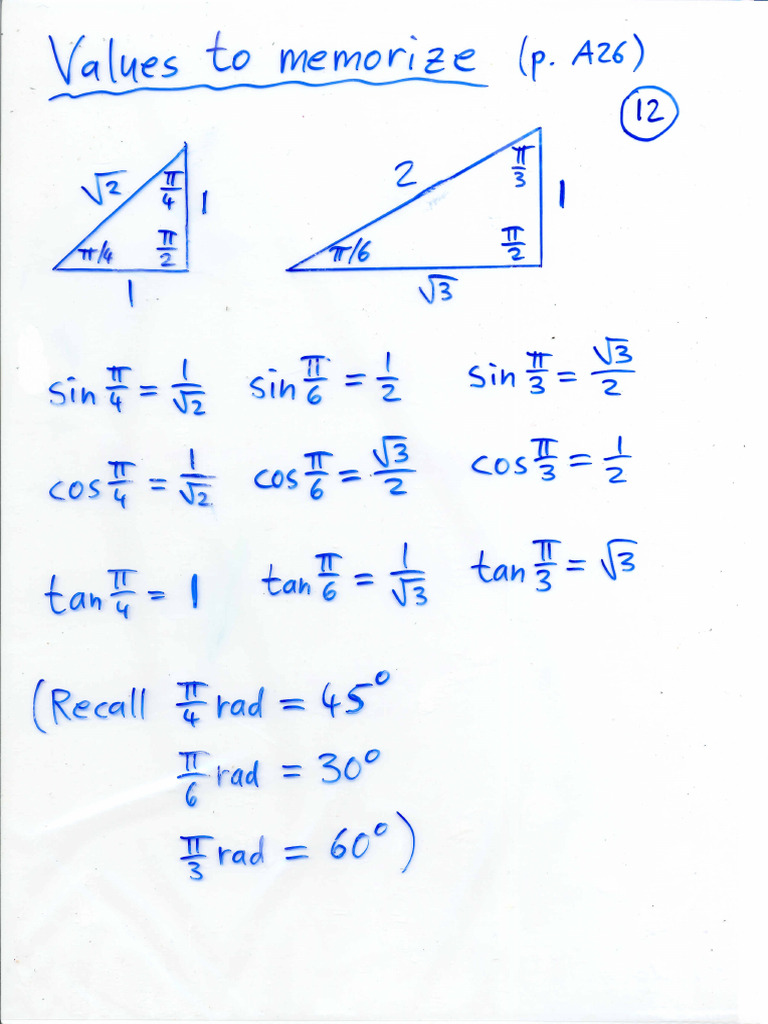 Values to memorize (p. A26)
12
√2 π/4 1 π/4 π/2 1
2 π/3 1 π/6 π/2 √3
sin π/4 = 1/√2 sin π/6 = 1/2 sin π/3 = √3/2
cos π/4 = 1/√2 cos π/6 = √3/2 cos π/3 = 1/2
tan π/4 = 1 tan π/6 = 1/√3 tan π/3 = √3
(Recall π/4 rad = 45°
π/6 rad = 30°
π/3 rad = 60°)